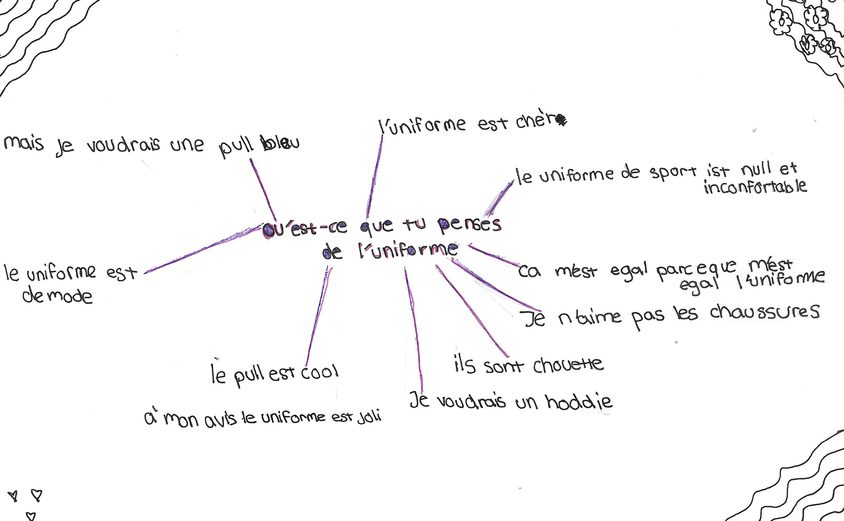 l'uniforme est chèr
mais je voudrais une pull bleu
le uniforme de sport ist null et
inconfortable
Qu'est-ce que tu penses
de l'uniforme
le uniforme est
demode
ca m'est egal parceque m'est
egal l'uniforme
Je n'aime pas les chaussures
ils sont chouette
le pull est cool
Je voudrais un hoddie
à mon avis le uniforme est joli